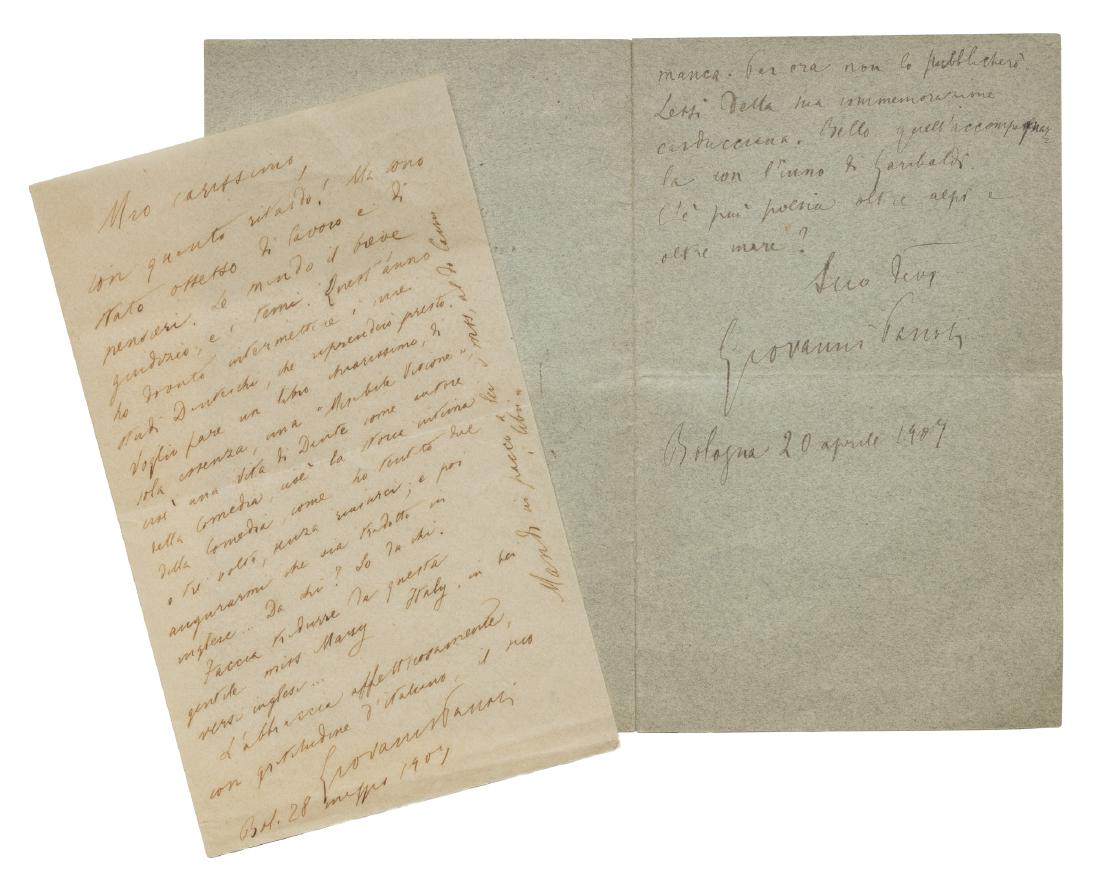 Mio carissimo,
con quanto ritardo! Ma sono
stato ossesso di lavoro e di
pensieri. Le mando il breve
giudizio, e i temi. Quest'anno
ho dovuto intermettere i miei
studi Danteschi, che riprenderò presto.
Voglio fare un libro chiarissimo, di
sola essenza, una "Mirabile Visione",
cioè una vita di Dante come autore
della Comedia, cioè la storia intima
della Comedia, come ho tentato due
o tre volte, senza riuscirci; e poi
augurarmi che sia tradotto in
inglese... Da chi? So da chi.
Faccia tradurre da questa
gentile miss Marsy Italy, in bei
versi inglesi...
L'abbraccia affettuosamente,
con gratitudine d'italiano, il suo
Giovanni Pascoli
Bol. 28 maggio 1907
Mando in pacco a lei i mss, al
i libri.
manca. Per ora non lo pubblicherò.
Lessi della sua commemorazione
carducciana. Bello quell'accompagnar
la con l'inno di Garibaldi.
C'è più poesia oltre alpi e
oltre mare?
Suo dev.
Giovanni Pascoli
Bologna 20 aprile 1907